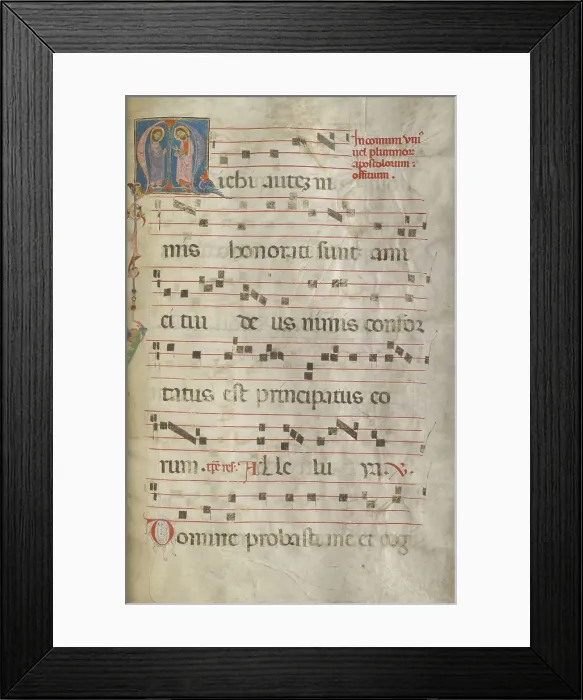 In comuni uni'
uel plurimor
apostolorum :
officium .
Michi autez ni
mis honorati sunt ami
ci tui de us nimis confor
tatus est principatus eo
rum . Alle lu ya. V.
Domine probasti me et cog